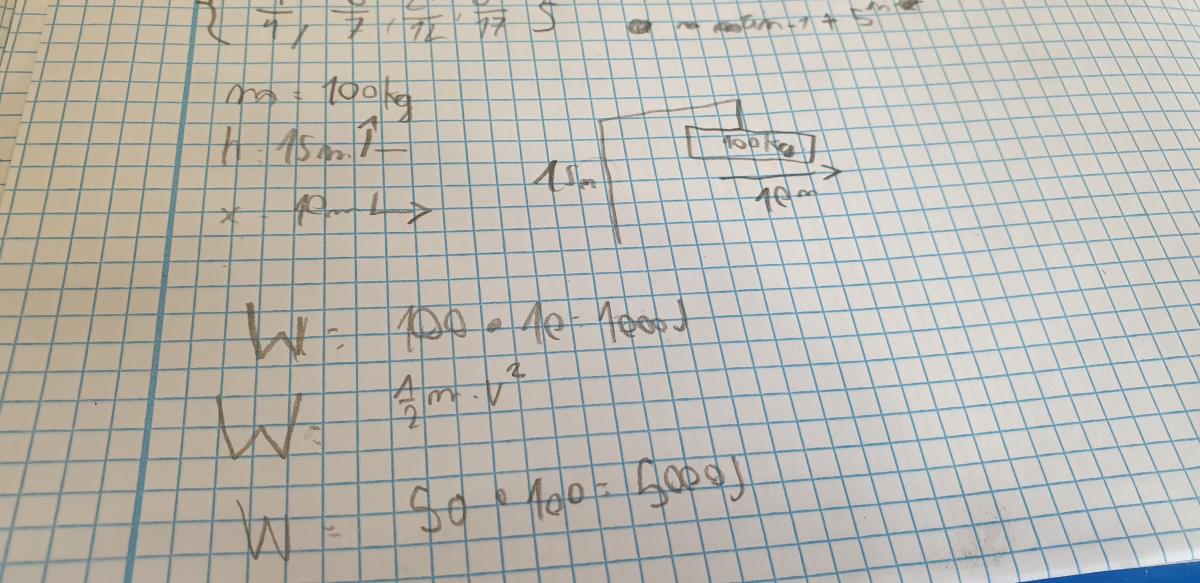 7, 12, 17 5
m = 100kg
h = 15m ↑
x = 10m →
15m
100kg
10m
W = 100 • 10 = 1000J
W = 1/2 m · V²
W = 50 • 100 = 5000J